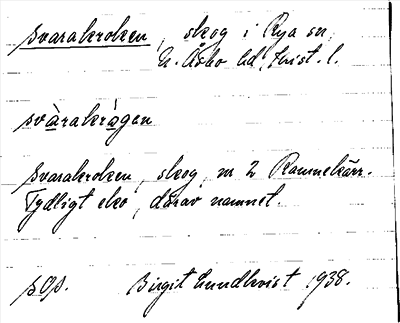 svarakroken, skog i Rya sn,
N. Åsbo hd, Krist. l.
svàrakrògen
svarakroken, skog, nr 2 Ramnekärr.
Tydligt eko, därav namnet.
sOp. Birgit Lundkvist 1938.